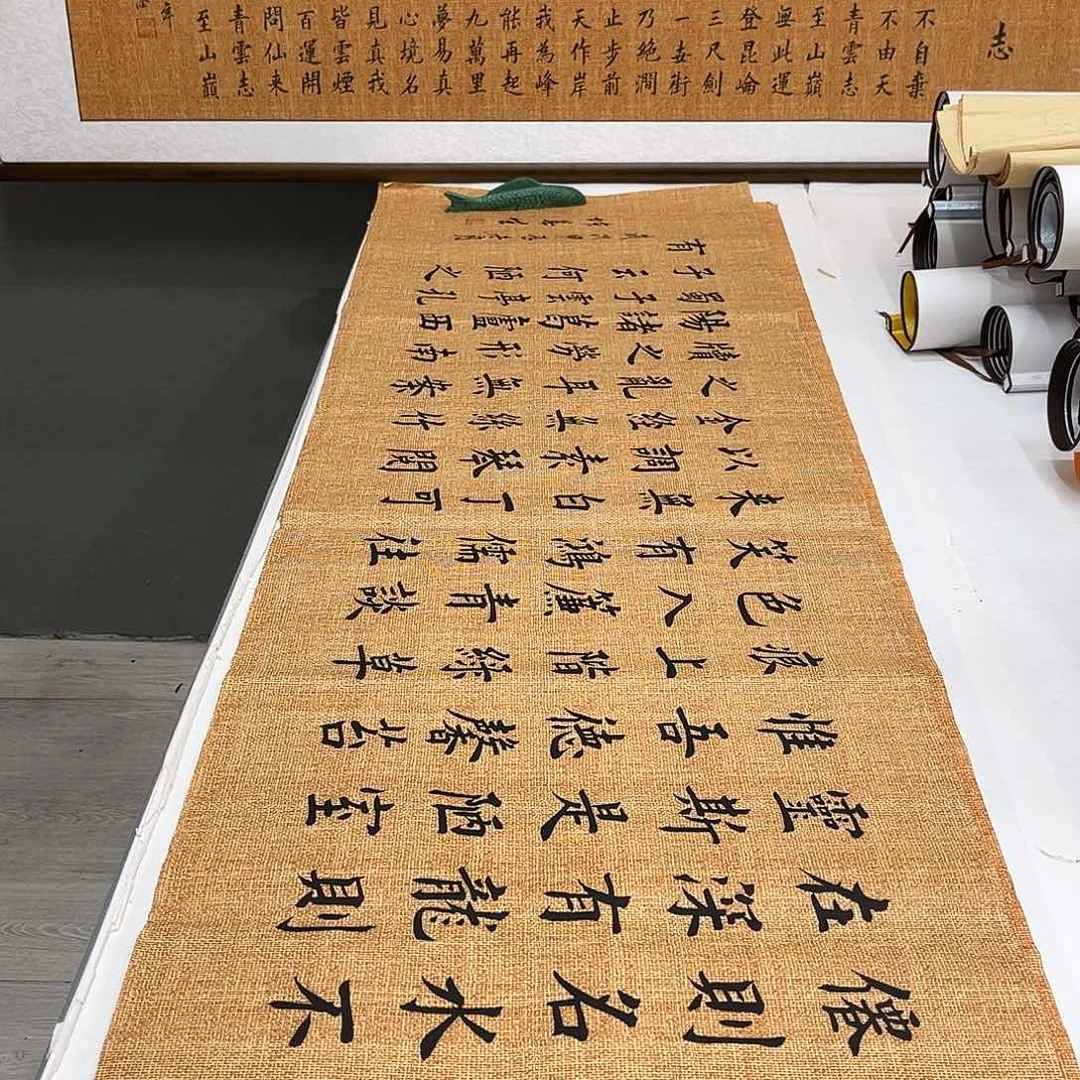 志
不自棄
不由天
青雲志
至山巔
無此運
登昆崙
三尺劍
一妄街
乃絕澗
止步前
天作岸
我為峰
能再起
九萬里
夢易真
心境名
見真我
皆雲煙
百運開
問仙来
青雲志
至山巔
僊則名水不
在深有龍則
靈斯是陋室
惟吾德馨苔
痕上階綠草
色入簾青談
笑有鴻儒往
来無白丁可
以調素琴閱
金經無絲竹
之亂耳無案
牘之勞形南
陽諸葛廬西
蜀子雲亭孔
子云何陋之
有